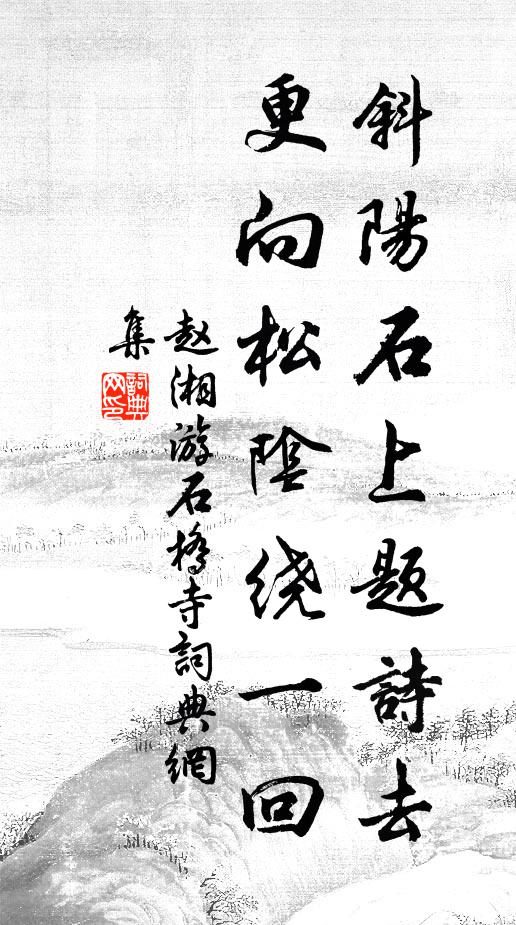 斜陽石上题詩去
更向松陰绕一回
赵湘游石橋寺詞典網
集
詞典网印